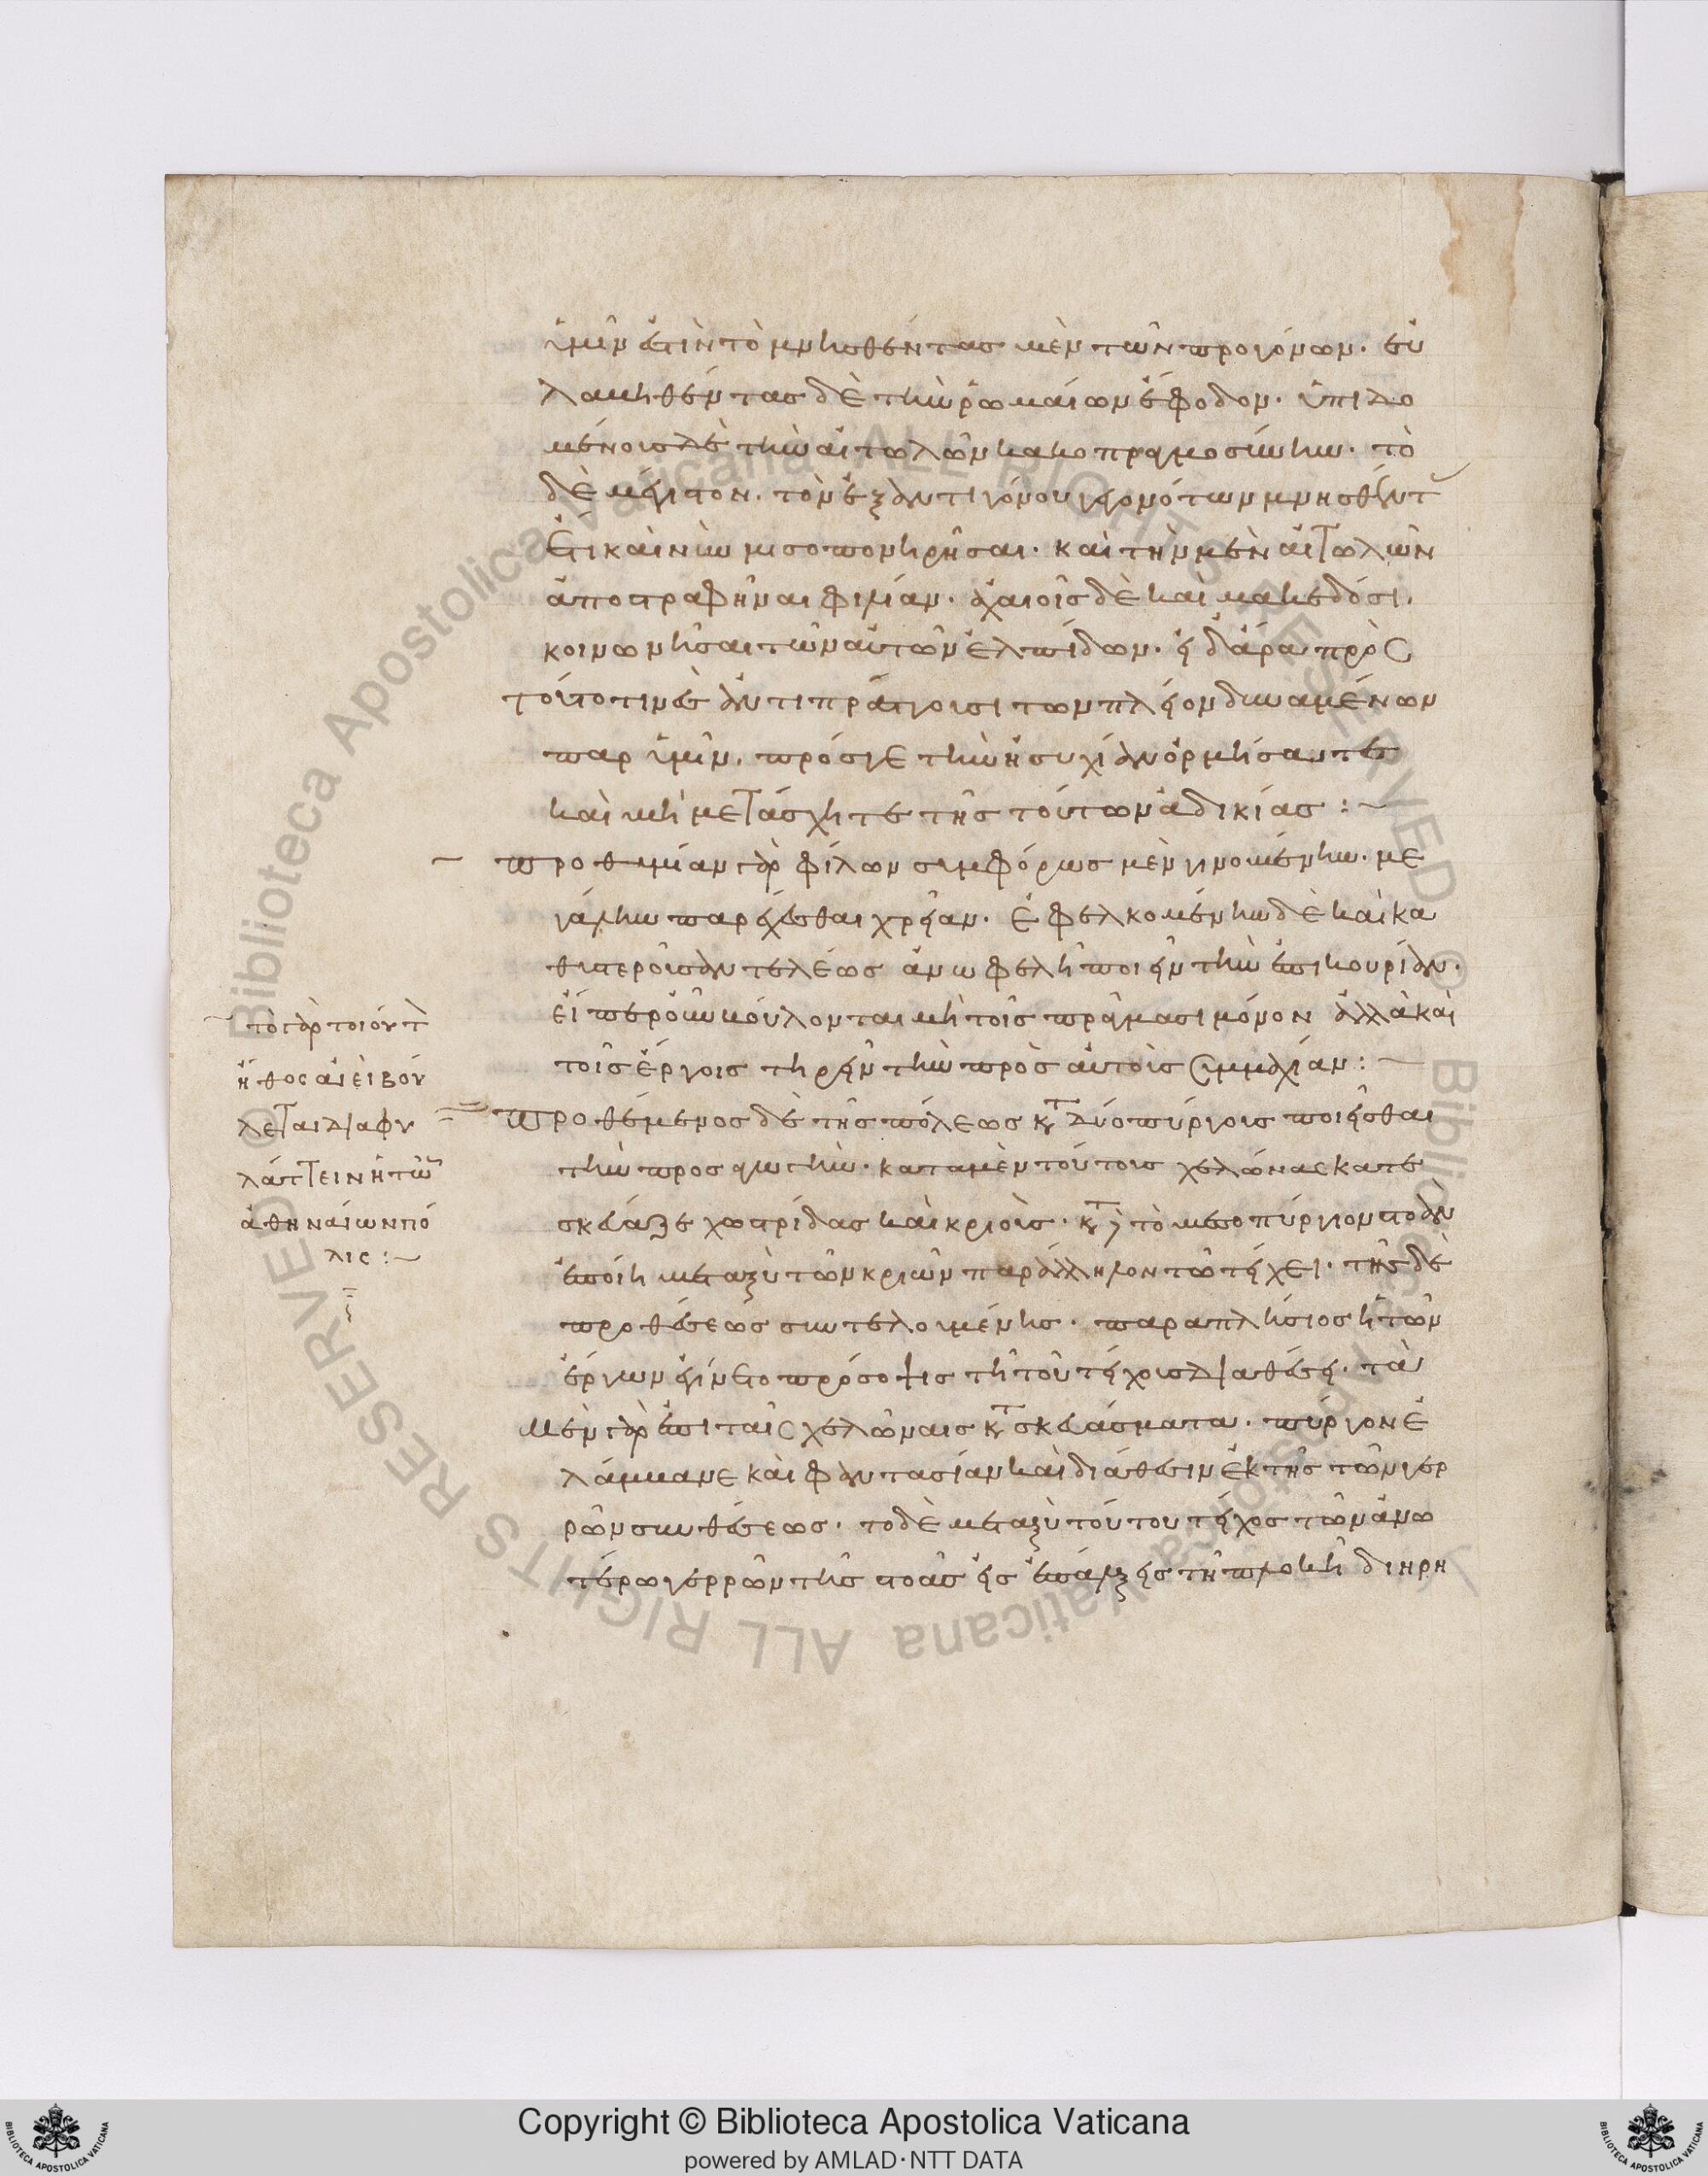 ὑμῖν ἐστὶν τὸ μνησθέντας μὲν τῶν προγόνων· εὐ
λαβηθέντας δὲ τὴν ῥωμαίων ἔφοδον· ὑπιδο
μένοις δὲ τὴν αἰτωλῶν κακοπραγμοσύνην· τὸ
δὲ μέγιστον. τῶν ἐξ ἀντιγόνου γεγονότων μνησθέντ
ἔτι καὶ νῦν μισοπονηρῆσαι· καὶ τὴν μὲν αἰτωλῶν
ἀποστραφῆναι φιλίαν· ἀχαιοῖς δὲ καὶ μακεδόσι.
κοινωνῆσαι τῶν αὐτῶν ἐλπίδων· εἰ δ' ἄρα πρὸς
τοῦτό τινες ἀντιπράττουσι τῶν πλεῖον δυναμένων
παρ' ὑμῖν. πρός γε τὴν ἡσυχίαν ὁρμήσαντες
καὶ μὴ μετάσχητε τῆς τούτων ἀδικίας :~
προθυμίαν γὰρ φίλων συμφόρως μὲν γινομένην· με
γάλην παρέχεσθαι χρείαν· ἐφελκομένην δὲ καὶ κα
θυστεροῦσαν τελέως ἀνωφελῆ ποιεῖν τὴν ἐπικουρίαν·
εἴπερ οὖν βούλονται μὴ τοῖς γράμμασι μόνον ἀλλὰ καὶ
τοῖς ἔργοις τηρεῖν τὴν πρὸς αὐτοὺς συμμαχίαν :~
προθέμενος δὲ τῆς πόλεως κατὰ δύο πύργους ποιεῖσθαι
τὴν προσαγωγὴν· κατὰ μὲν τούτους χελώνας κατε
σκεύαζε χωστρίδας καὶ κριοὺς· κατὰ τὸ μεσοπύργιον στοὰν
ἐποίει μεταξὺ τῶν κριῶν παράλληλον τῶ τείχει· τῆς δὲ
προθέσεως συντελουμένης· παραπλήσιος ἡ τῶν
ἔργων ἐγίνετο πρόσοψις τῆ τοῦ τείχους διαθέσει· τὰ
μὲν γὰρ ἐπὶ ταῖς χελώναις κατασκευάσματα· πύργων ἐ
λάμβανε καὶ φαντασίαν καὶ διάθεσιν ἐκ τῆς τῶν γέρ
ρων συνθέσεως· τὸ δὲ μεταξὺ τούτου τεῖχος τῶν ἀνω
τέρω γέρρων τῆς στοᾶς εἰς ἐπάλξεις τῆ πλοκῆ διηρη
τὸ γὰρ τοιοῦτο
ἦθος αἰεὶ βού
λεται διαφυ
λάττειν ἡ τῶν
ἀθηναίων πό
λις :~